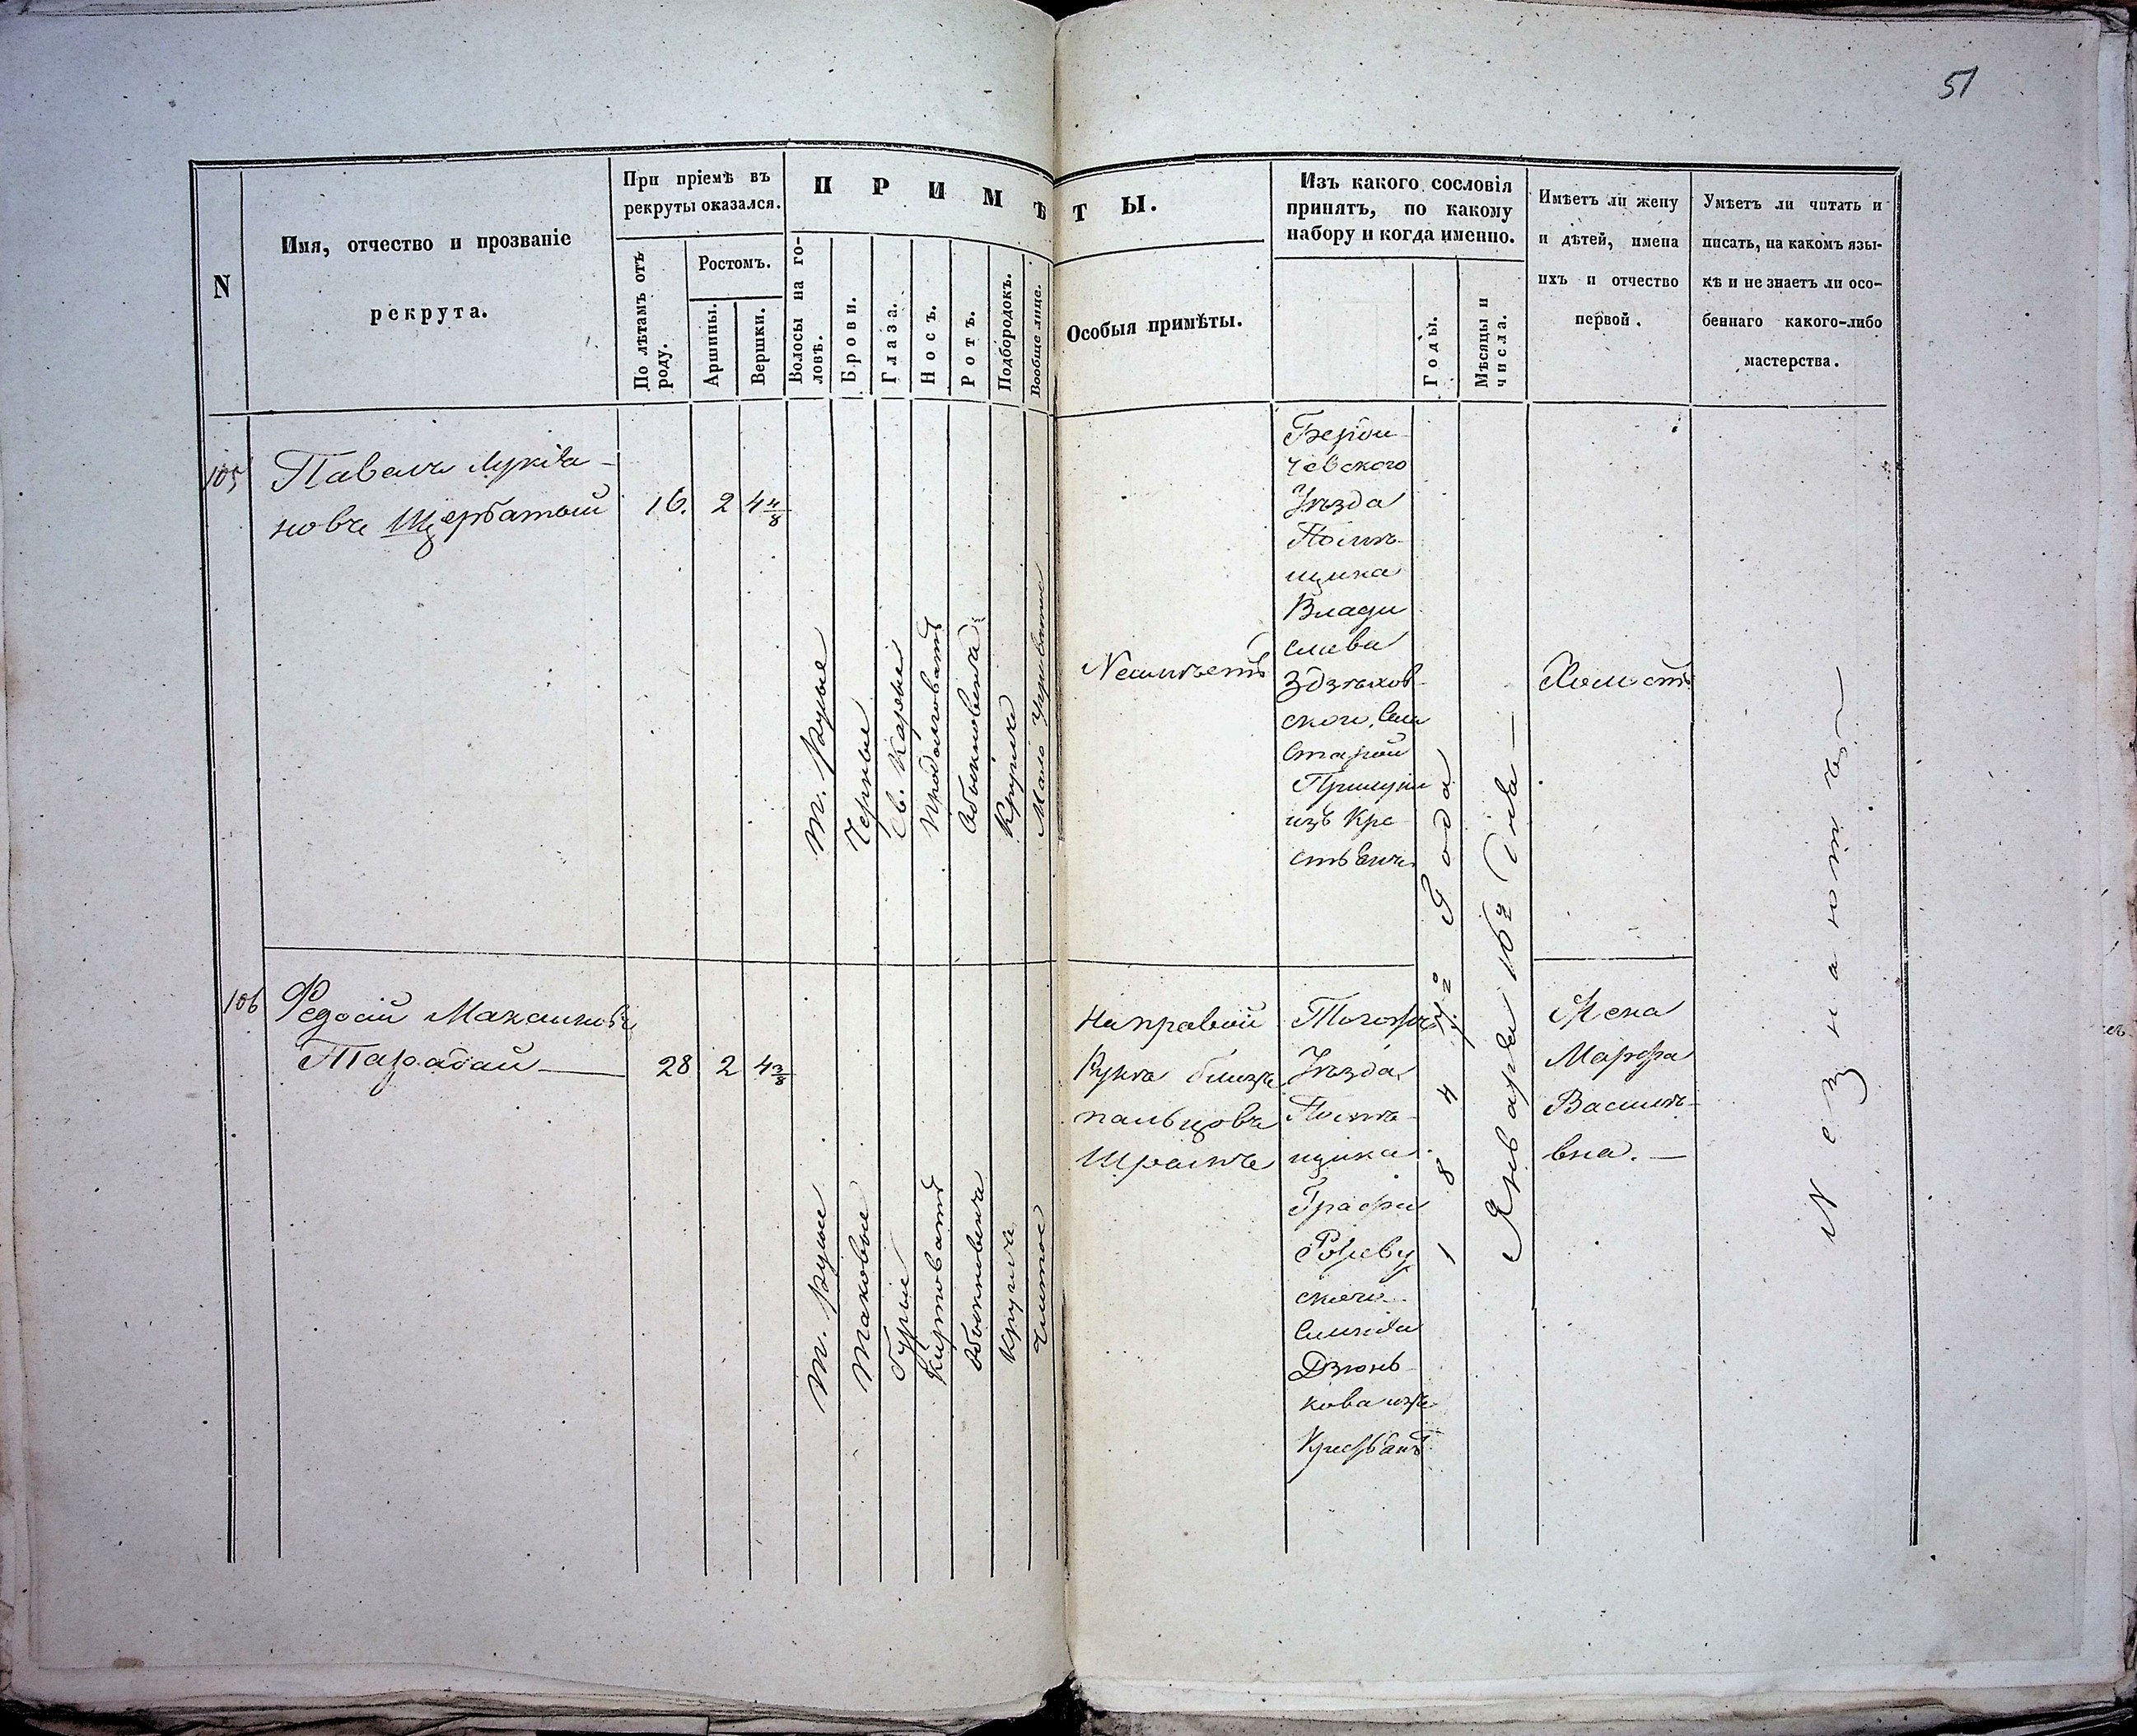 51
N
Имя, отчество и прозваніе
рекрута.
При пріемѣ въ
рекруты оказался.
По лѣтамъ отъ
роду.
Ростомъ.
Аршины.
Вершки.
ПРИМѢТЫ.
Волосы на го-
ловѣ.
Брови.
Глаза.
Носъ.
Ротъ.
Подбородокъ.
Вообще лице.
Особыя примѣты.
Изъ какого сословія
принятъ, по какому
набору и когда именно.
Годы.
Мѣсяцы и
числа.
Имѣетъ ли жену
и дѣтей, имена
ихъ и отчество
первой.
Умѣетъ ли читать и
писать, на какомъ язы-
кѣ и не знаетъ ли осо-
беннаго какого-либо
мастерства.
105
Павелъ Лукіа-
новъ Щербатый
16.
2
4 4/8
т. Русые
Черные
Св. Карые
Продолговатъ
Обыкновенъ
Круглъ
Мало Угриватое
Неимѣетъ
Берди-
чевского
Уѣзда
Помѣ-
щика
Влади
слава
Здзѣхов-
ского, Села
Старой
Прилуки
изъ Кре-
стьянъ
Холостъ
106
Федосій Максимовъ
Тарабай
28
2
4 3/8
т. Русые
Таковые
Сѣрые
Обыкновенъ
Круглъ
Чистое
На правой
Рукѣ близъ
пальцовъ
Шрамъ
Уѣзда
Помѣ-
щика
Графа
Ржеву
ского
Дзюнь-
кова изъ
Крестьянъ
1847го Года
Января 16го дня
Жена
Марфа
Василь-
вна.
Незнаютъ